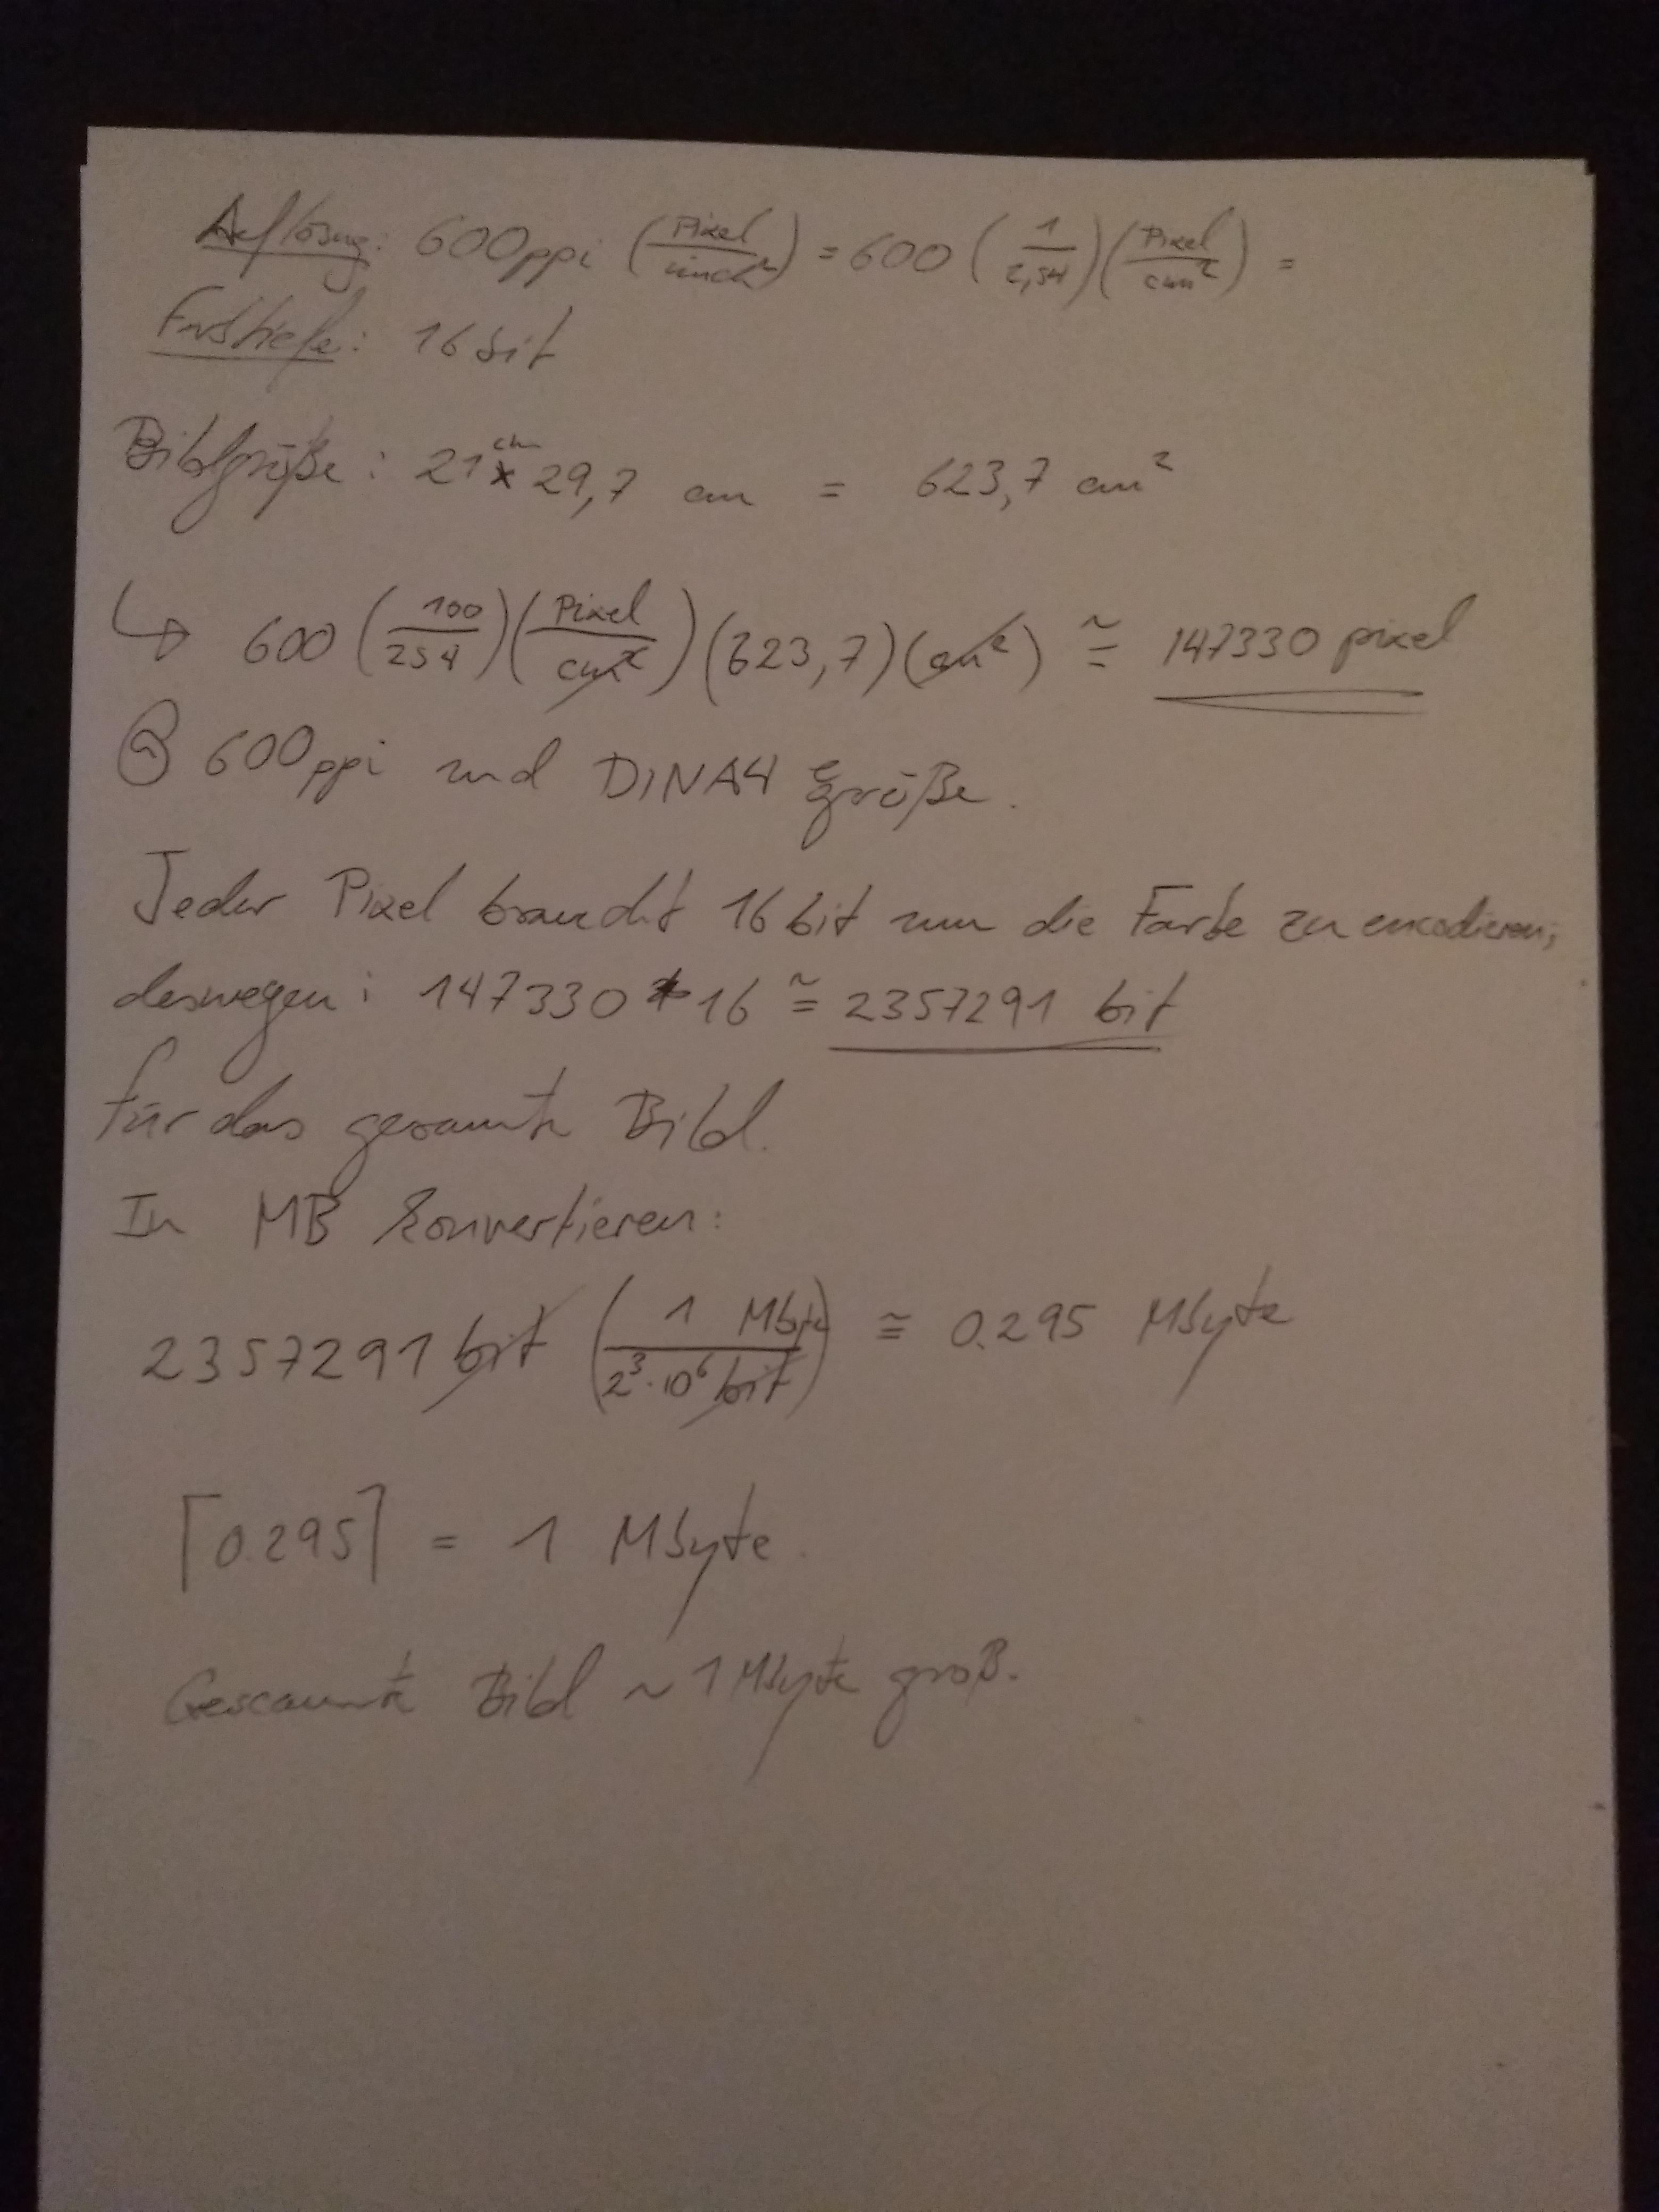 Auflösung: 600ppi (Pixel/inch²) = 600 (1/2,54)(Pixel/cm²) =
Farbtiefe: 16 bit
Bildgröße: 21 cm x 29,7 cm = 623,7 cm²
↳ 600 (100/254)(Pixel/cm²)(623,7)(cm²) ≅ 147330 pixel
@ 600ppi und DINA4 größe.
Jeder Pixel braucht 16 bit um die Farbe zu encodieren,
deswegen: 147330 * 16 ≅ 2357291 bit
für das gesamte Bild.
In MB konvertieren:
2357291 bit (1 Mbyte/2³·10⁶ bit) ≅ 0.295 Mbyte
⌈0.295⌉ = 1 Mbyte.
Gescannte Bild ~ 1 Mbyte groß.